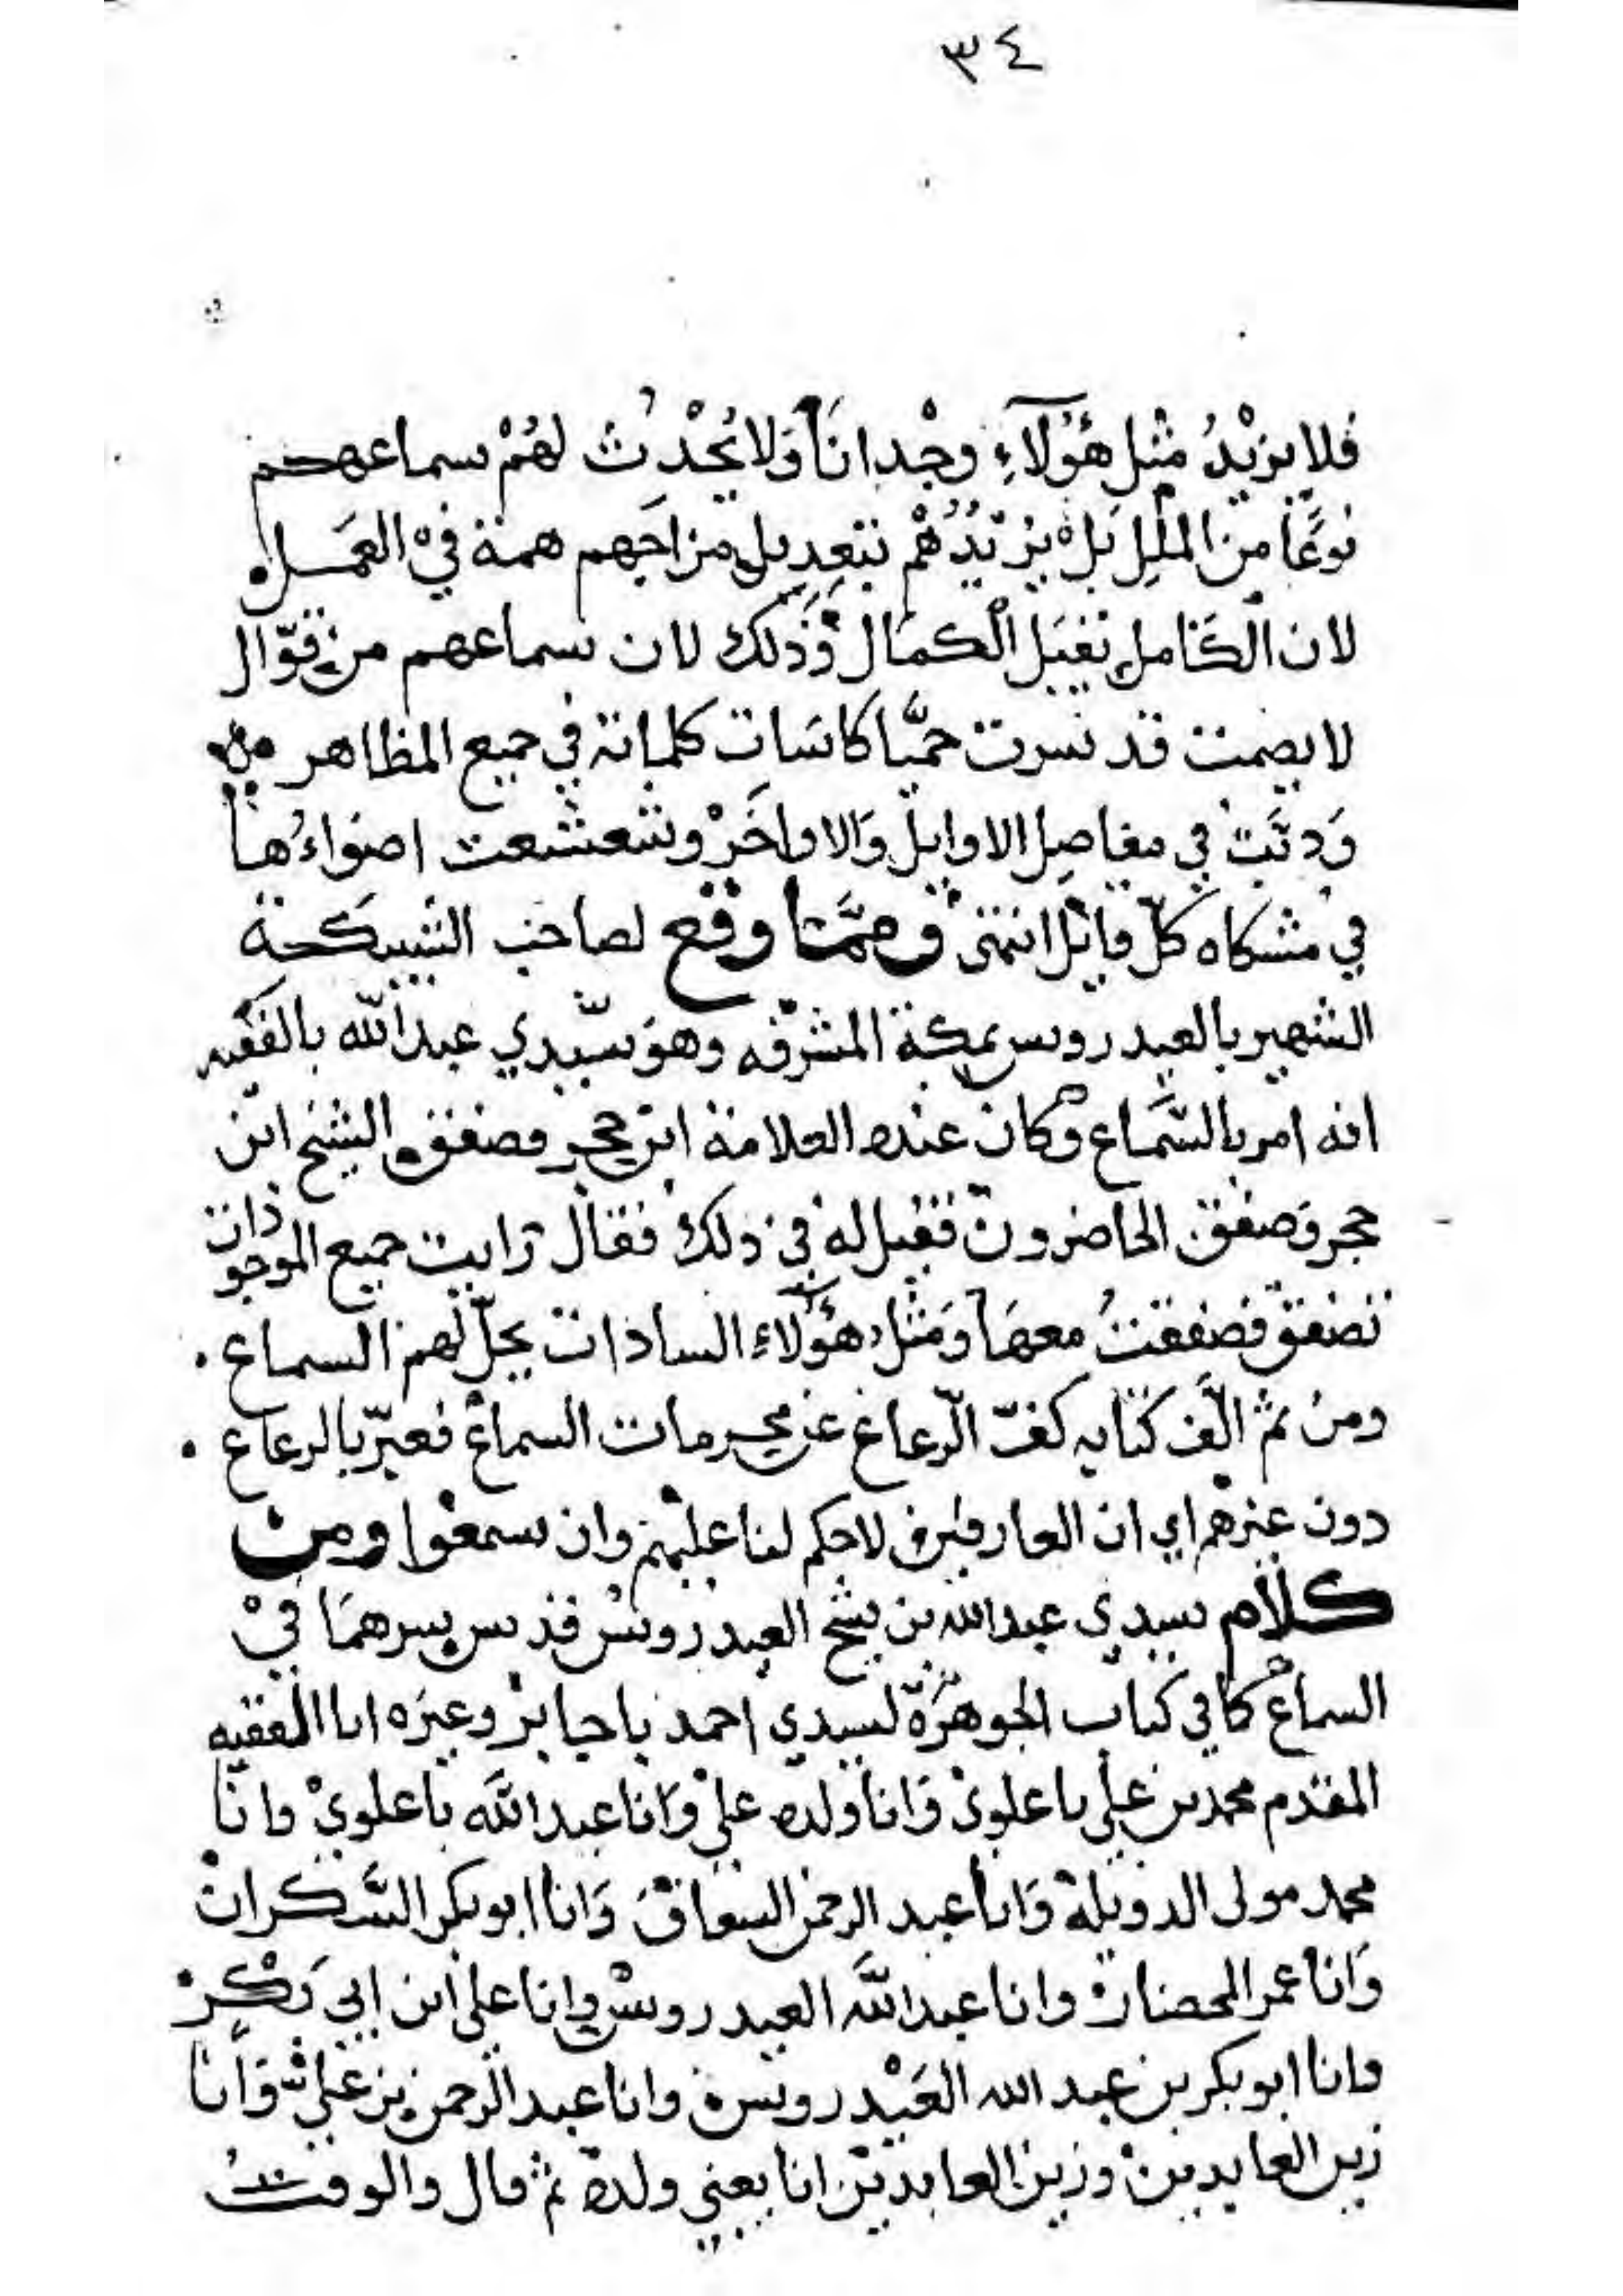 ٣٤
فلا يزيْدُ مثْل هَؤُلَآءِ وجْدانَاً وَلا يُحْدِثُ لهُمْ سماعهم
نوعًا من المللِ بَلْ يزيْدُهُمْ بتعدِيل مزاجَهم همة فيْ العَمل
لان الكَامل يَقبَل الكمَال وَذلك لان سماعهم من قوّال
لا يصمت قد سرت حميَّا كاسَات كلماته في جميع المظاهر
وَدبَّت في مفاصِل الاوايل وَالاواخَرْ وشعشعت اضواءُهَا
في مشكاه كلّ قايل انتهى وممَّا وقع لصاحب الشبيكة
الشهير بالعيدروس بمكة المشرّفه وهوَ سيّدي عبد الله بالفقيه
انه امر بالسَّماع وكان عنده العلامة ابن حجر فصفق الشيخ ابن
حجر وَصفق الحاضرون فقيل له في ذلك فقال رايت جميع الموجودات
تصفق فصفقتُ معهَا وَمثل هؤُلَاءِ السادات يحلّ لهم السماع .
ومن ثم الَّف كتابه كفّ الرّعاع عن محرمات السماع فعبّر بالرعاع .
دون غيرهم اي ان العارفين لا حكم لنا عليهم وان سمعوا ومن
كلام سيدي عبد الله بن شيخ العيدروس قدس سرهمَا فيْ
السماع كما في كتاب الجوهرة لسيدي احمد باجابر وغيره انا الفقيه
المقدم محمد بن علي باعلويْ وَانا ولده علي وَانا عبد اللَّه باعلويْ وانا
محمد مولى الدويلة وَانا عبد الرحمن السقاف وَانا ابو بكر السَّكران
وَانا عمر المحضار وانا عبد اللَّه العيدروس وانا علي ابن ابي بَكْر
وانا ابو بكر بن عبد الله العَيْدروس وانا عبد الرحمن بن علي وَانا
زين العابدين وزين العابدين انا يعني ولده ثم قال والوقت